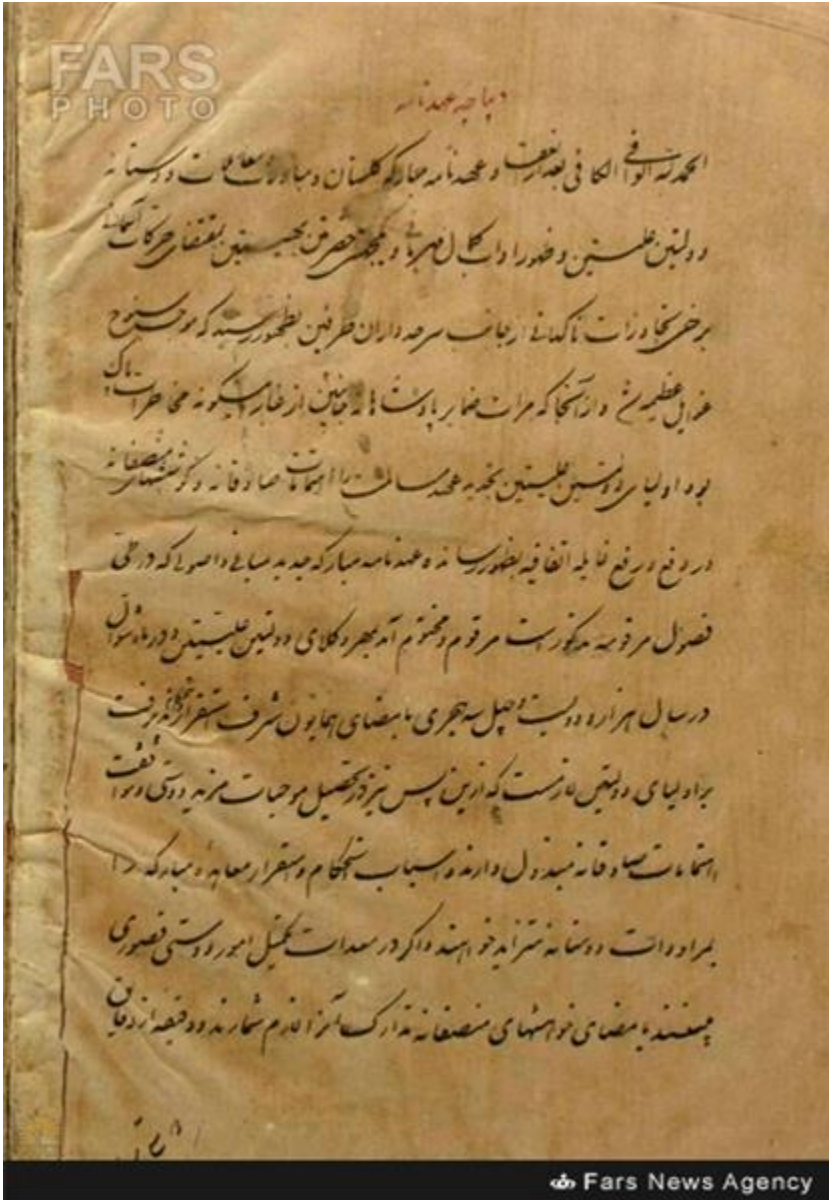 FARS
PHOTO
دیباچه عهدنامه
الحمدلله الوافی و الکافی بعد از انعقاد عهدنامه مبارکه گلستان و مبادلات و معاملات دوستانه
دولتین علیتین و ظهور آداب کمال مهربانی و یکجهتی حضرتین بهیتین بمقتضای حرکات آسمانی
برخی تجاوزات ناگهانی از جانب سرحدداران طرفین بظهور رسید که موجب سنوح
غوایل عظیمه شد و از آنجا که مرآت ضمایر پادشاهانه جانبین از غبار اینگونه مخاطرات پاک
بود اولیای دولتین علیتین تجدید عهد مسالمت را اهتمامات صادقانه و کوششهای منصفانه
در دفع و رفع غایله اتفاقیه بظهور رسانده عهدنامه مبارکه جدید بمبانی و اصولی که در طی
فصول مرقومه مذکور است مرقوم و مختوم آمد بمهر وکلای دولتین علیتین و در ماه شوال
در سال هزار و دویست و چهل و سه هجری بامضای همایون شرف استقرار و استحکام پذیرفت
بر اولیای دولتین لازمست که ازین پس نیز در تحصیل موجبات مزید دوستی و موافقت
اهتمامات صادقانه مبذول دارند و اسباب استحکام و استقرار معاهده مبارکه را
بمراودات دوستانه متزاید خواهند و اگر در معدات تکمیل امور دوستی قصوری
بینند بامضای خواهشهای منصفانه تدارک آنرا لازم شمارند و دقیقه از دقایق
Fars News Agency